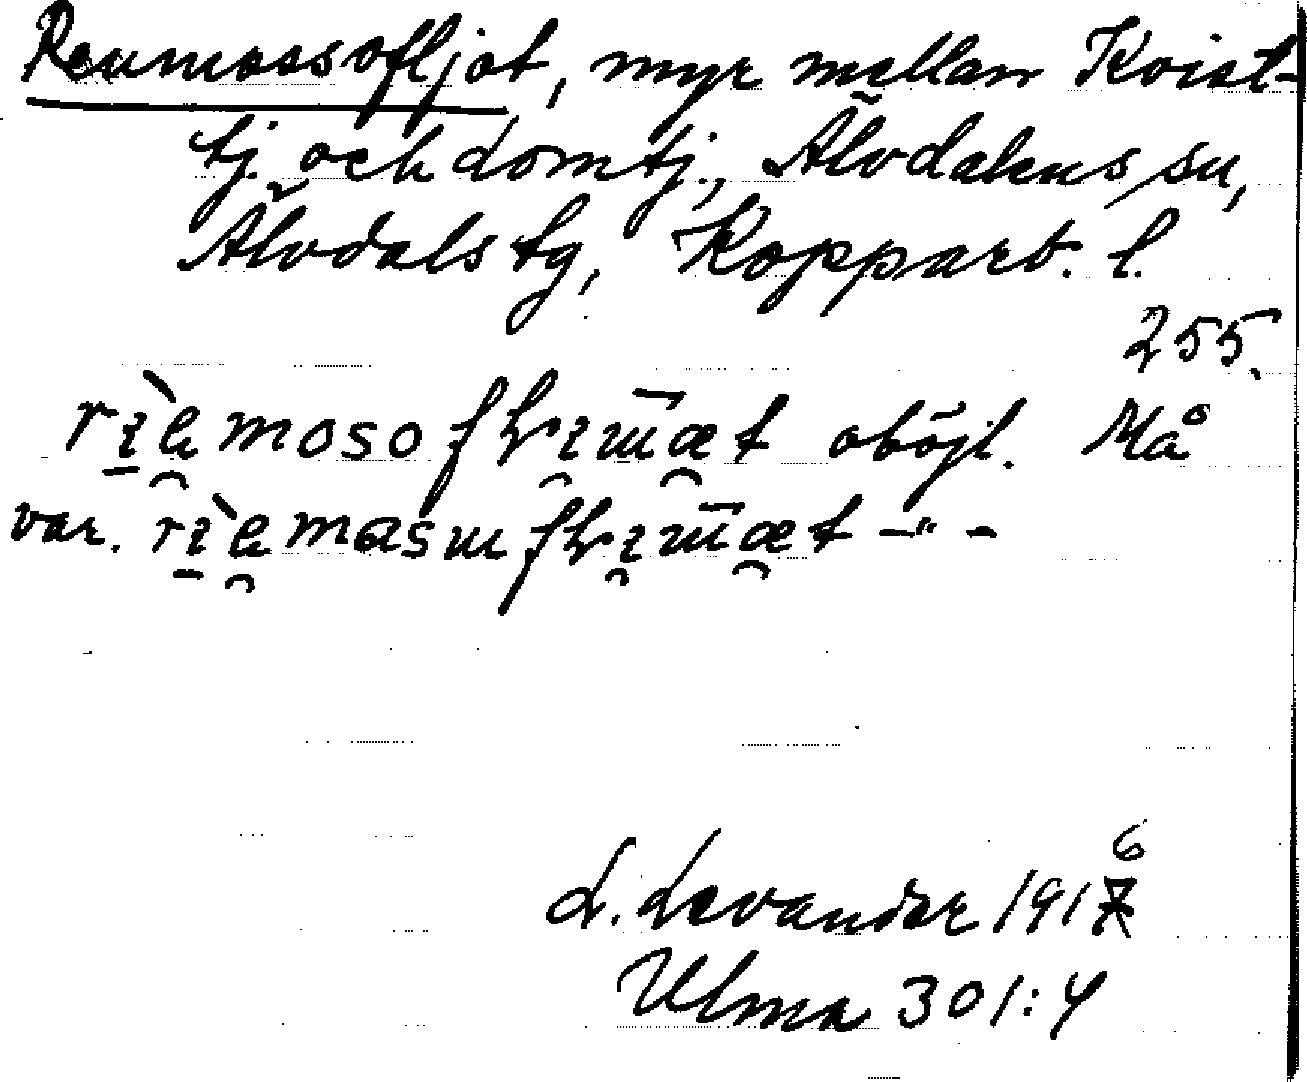 Reumossofljot, myr mellan Kvist-
tj. och Lomtj., Älvdalens sn,
Älvdals tg, Kopparb. l.
255.
oböjl. Må
var. –"–
L. Levander 1916
Ulma 301:4